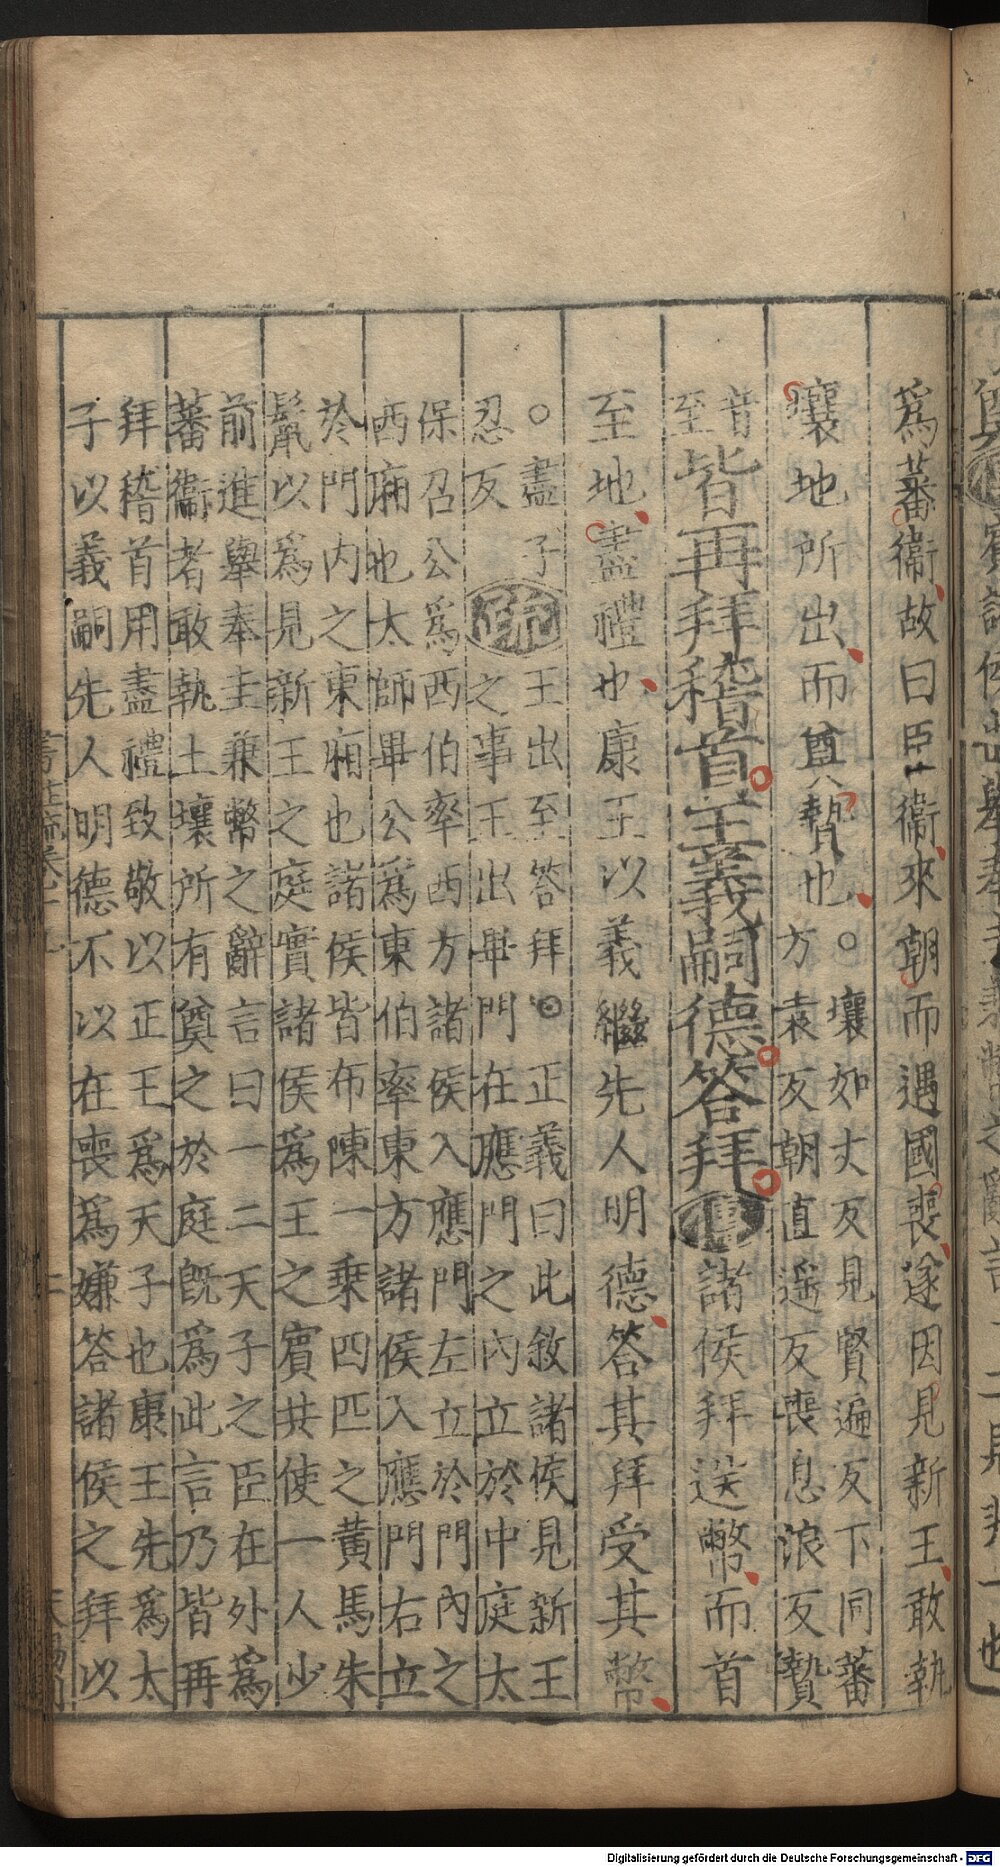 爲蕃衞故曰臣衞來朝而遇國喪遂因見新王敢執
壤地所出而奠贄也○壤如丈反見賢遍反下同蕃
方袁反朝直遥反喪息浪反贄
音
至皆再拜稽首王義嗣德答拜傳諸侯拜送幣而首
至地盡禮也康王以義繼先人明德答其拜受其幣
○盡子
忍反疏王出至答拜○正義曰此敘諸侯見新王
之事王出畢門在應門之內立於中庭太
保召公爲西伯率西方諸侯入應門左立於門內之
西廂也太師畢公爲東伯率東方諸侯入應門右立
於門内之東廂也諸侯皆布陳一乗四匹之黄馬朱
鬛以爲見新王之庭實諸侯爲王之賔共使一人少
前進舉奉圭兼幣之辭言曰一二天子之臣在外爲
蕃衞者敢執土壤所有奠之於庭旣爲此言乃皆再
拜稽首用盡禮致敬以正王爲天子也康王先爲太
子以義嗣先人明德不以在喪爲嫌答諸侯之拜以
Digitalisierung gefördert durch die Deutsche Forschungsgemeinschaft - DFG